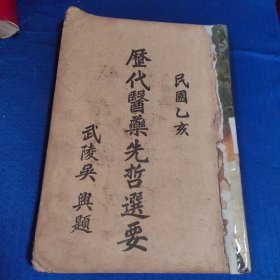 民國乙亥
歷代醫藥先哲選要
武陵吳興題